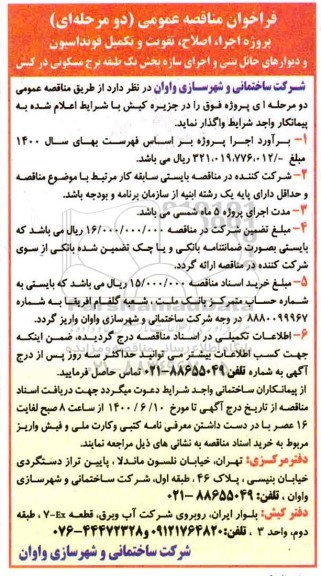 فراخوان مناقصه عمومی (دو مرحله‌ای)
پروژه اجراء، اصلاح، تقویت و تکمیل فونداسیون
و دیوارهای حائل بتنی و اجرای سازه بخش یک طبقه برج مسکونی در کیش
شرکت ساختمانی و شهرسازی واوان در نظر دارد از طریق مناقصه عمومی
دو مرحله ای پروژه فوق را در جزیره کیش با شرایط اعلام شده به
پیمانکار واجد شرایط واگذار نماید.
۱- برآورد اجرا پروژه بر اساس فهرست بهای سال ۱۴۰۰
مبلغ -/۳۲۱،۰۱۹،۷۷۶،۰۱۲ ریال می باشد.
۲- شرکت کننده در مناقصه بایستی سابقه کار مرتبط با موضوع مناقصه
و حداقل دارای پایه یک رشته ابنیه از سازمان برنامه و بودجه باشد.
۳- مدت اجرای پروژه ۵ ماه شمسی می باشد.
۴- مبلغ تضمین شرکت در مناقصه ۱۶/۰۰۰/۰۰۰/۰۰۰ ریال می باشد که
بایستی بصورت ضمانتنامه بانکی و یا چک تضمین شده بانکی از سوی
شرکت کننده در مناقصه ارائه گردد.
۵- مبلغ خرید اسناد مناقصه ۱۵/۰۰۰/۰۰۰ ریال می باشد که بایستی به
شماره حساب متمرکز بانک ملت، شعبه گلفام آفریقا به شماره
۸۸۸۰۰۹۹۹۶۷ در وجه شرکت ساختمانی و شهرسازی واوان واریز گردد.
۶- اطلاعات تکمیلی در اسناد مناقصه درج گردیده، ضمن اینکه
جهت کسب اطلاعات بیشتر می توانید حداکثر سه روز پس از درج
آگهی به شماره تلفن ۸۸۶۵۵۰۴۹-۰۲۱ تماس حاصل فرمایید.
از پیمانکاران ساختمانی واجد شرایط دعوت میگردد جهت دریافت اسناد
مناقصه از تاریخ درج آگهی تا مورخ ۱۴۰۰/۶/۱۰ از ساعت ۸ صبح لغایت
۱۶ عصر با در دست داشتن معرفی نامه کتبی وکارت ملی و فیش واریز
مربوط به خرید اسناد مناقصه به نشانی های ذیل مراجعه نمایند.
دفتر مرکزی: تهران، خیابان نلسون ماندلا، پایین تراز دستگردی
خیابان بنیسی، پلاک ۴۶، طبقه اول، شرکت ساختمانی و شهرسازی
واوان، تلفن: ۸۸۶۵۵۰۴۹-۰۲۱
دفتر کیش: بلوار ایران، روبروی شرکت آب وبرق، قطعه Ex-۷، طبقه
دوم، واحد ۳، تلفن: ۰۹۱۲۱۷۶۴۸۲۰ و ۴۴۴۷۲۳۲۸-۰۷۶
شرکت ساختمانی و شهرسازی واوان